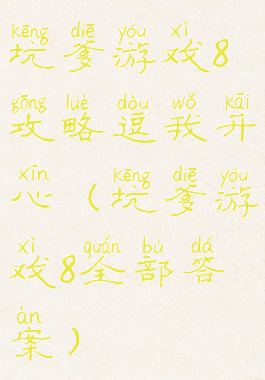 kēng diē yóu xì
坑爹游戏8
gōng lüè dòu wǒ kāi
攻略逗我开
xīn kēng diē yóu
心（坑爹游
xì quán bù dá
戏8全部答
àn
案）